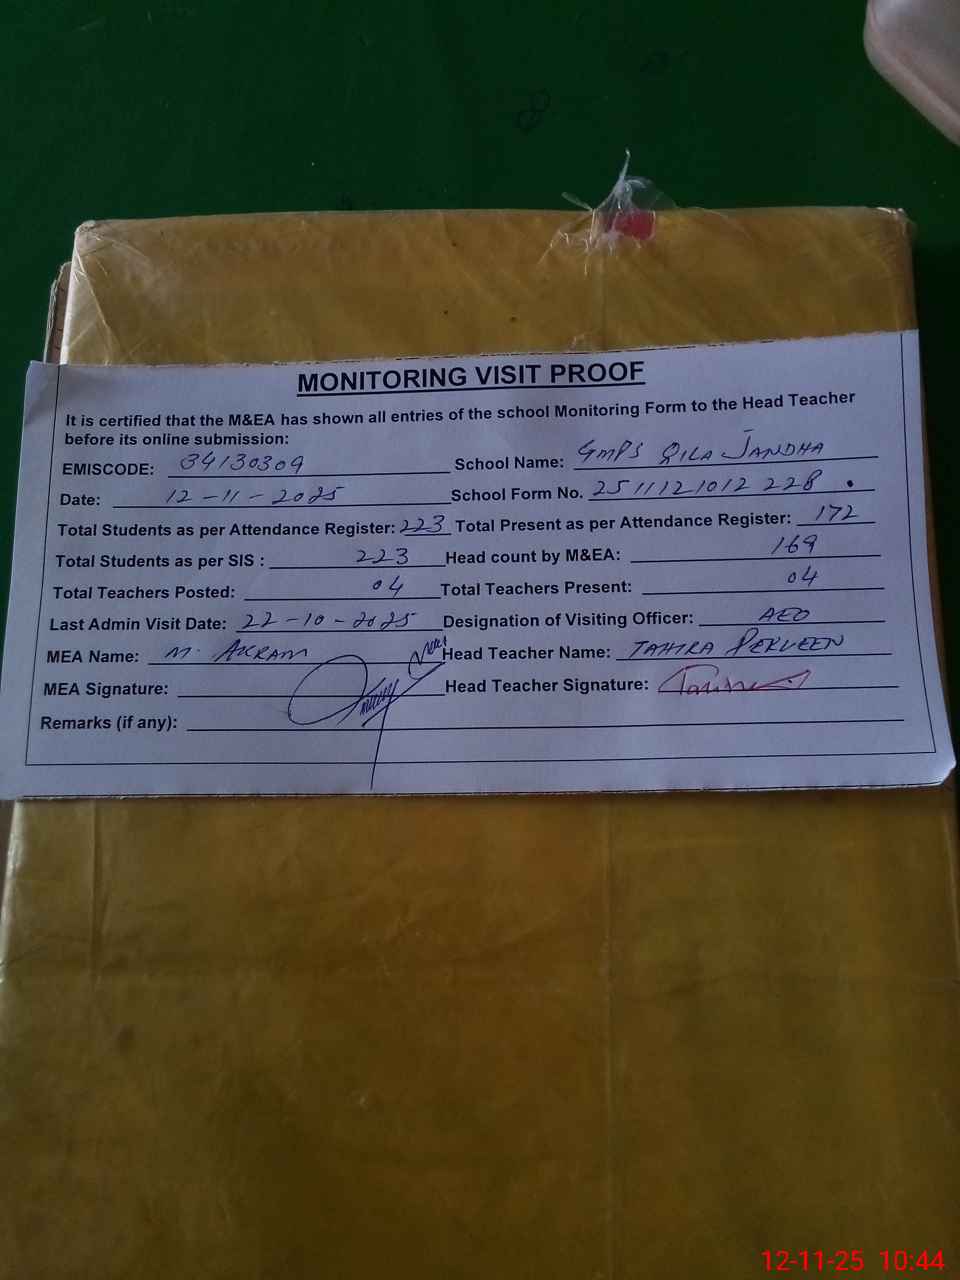 MONITORING VISIT PROOF
It is certified that the M&EA has shown all entries of the school Monitoring Form to the Head Teacher
before its online submission:
EMISCODE: 34130309 School Name: GMPS QILA JANDHA
Date: 12-11-2025 School Form No. 2511121012228
Total Students as per Attendance Register: 223 Total Present as per Attendance Register: 172
Total Students as per SIS : 223 Head count by M&EA: 169
Total Teachers Posted: 04 Total Teachers Present: 04
Last Admin Visit Date: 22-10-2025 Designation of Visiting Officer: AEO
MEA Name: M. AKRAM Head Teacher Name: TAHIRA PERVEEN
MEA Signature: Head Teacher Signature:
Remarks (if any):
12-11-25 10:44